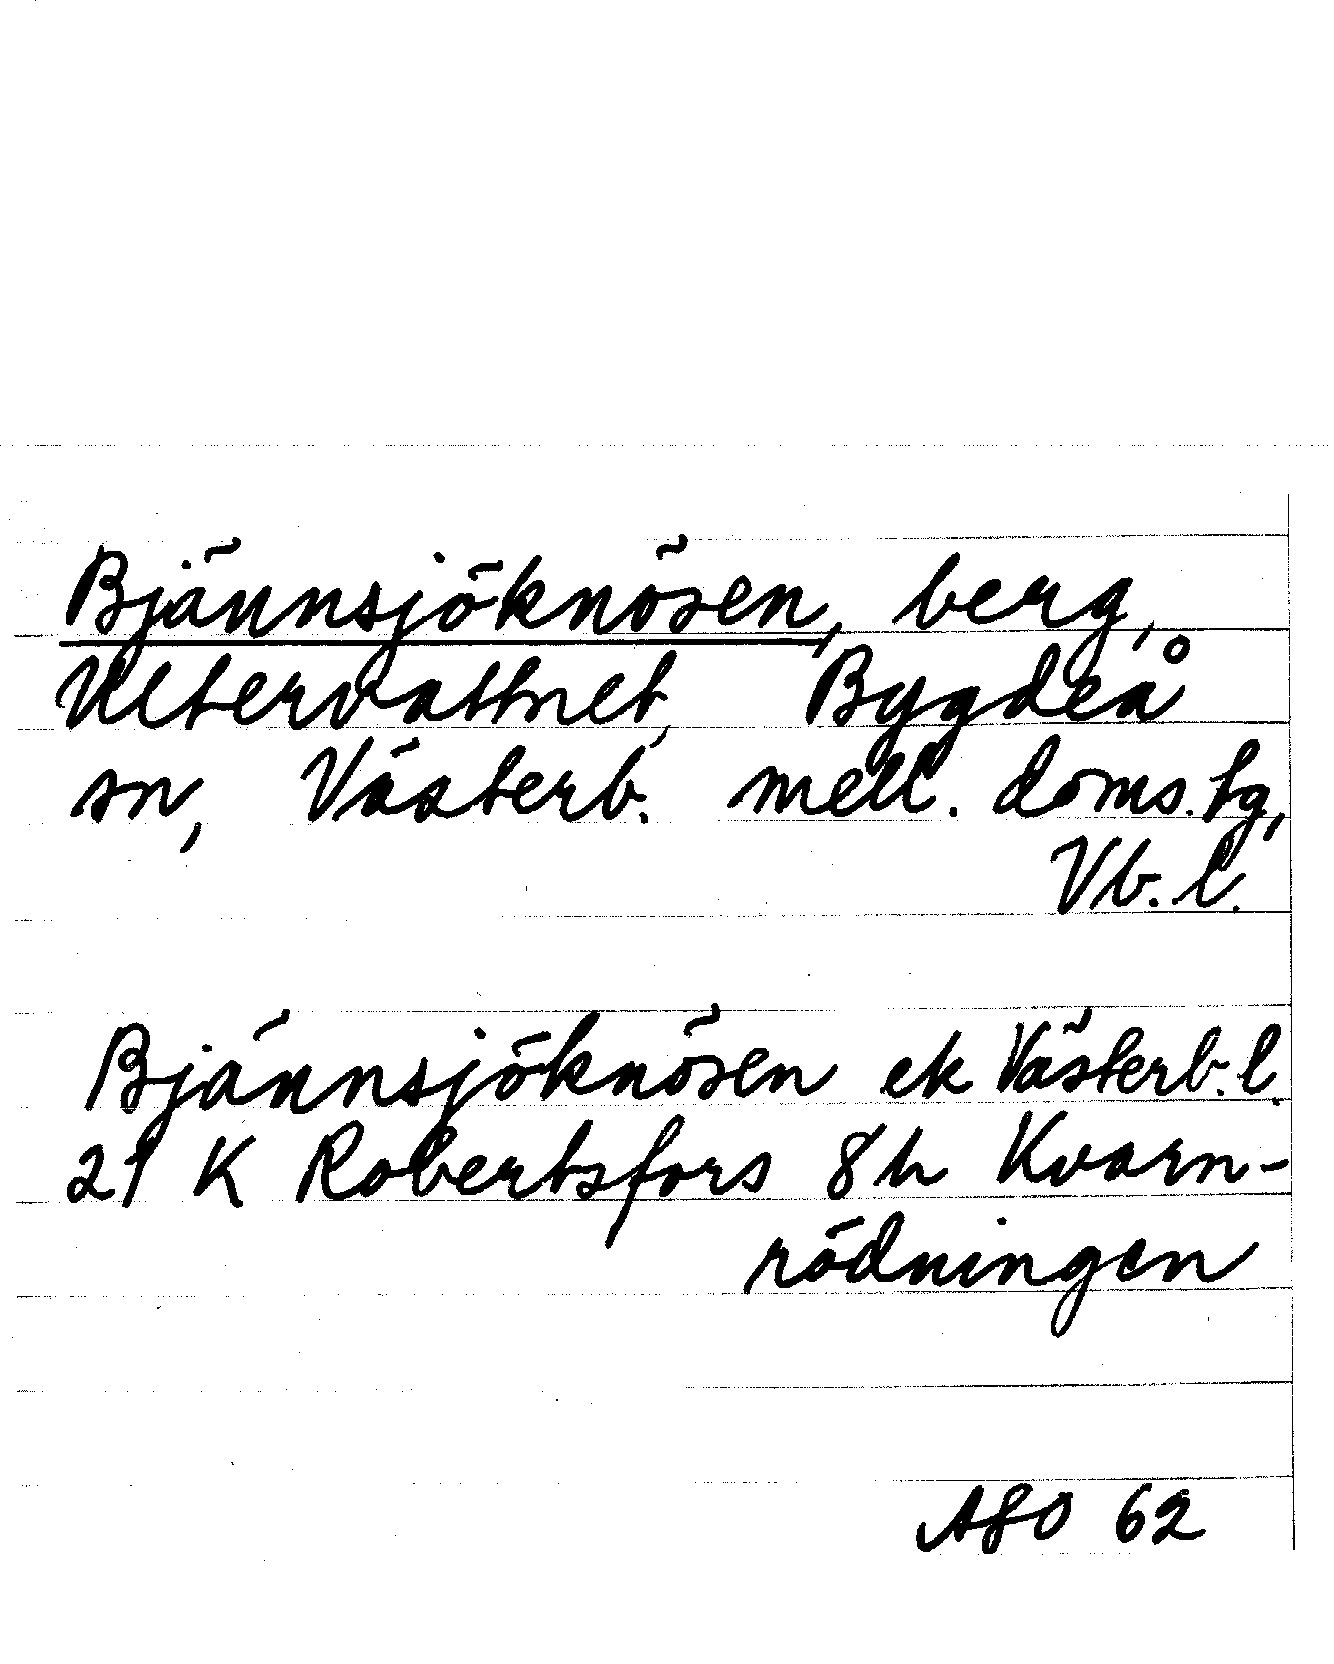 Bjännsjöknösen, berg,
Ultervattnet, Bygdeå
sn, Västerb. mell. doms. tg,
Vb. l.
Bjännsjöknösen ek Västerb. l.
21 K Robertsfors 8h Kvarn-
rödningen
ASO 62